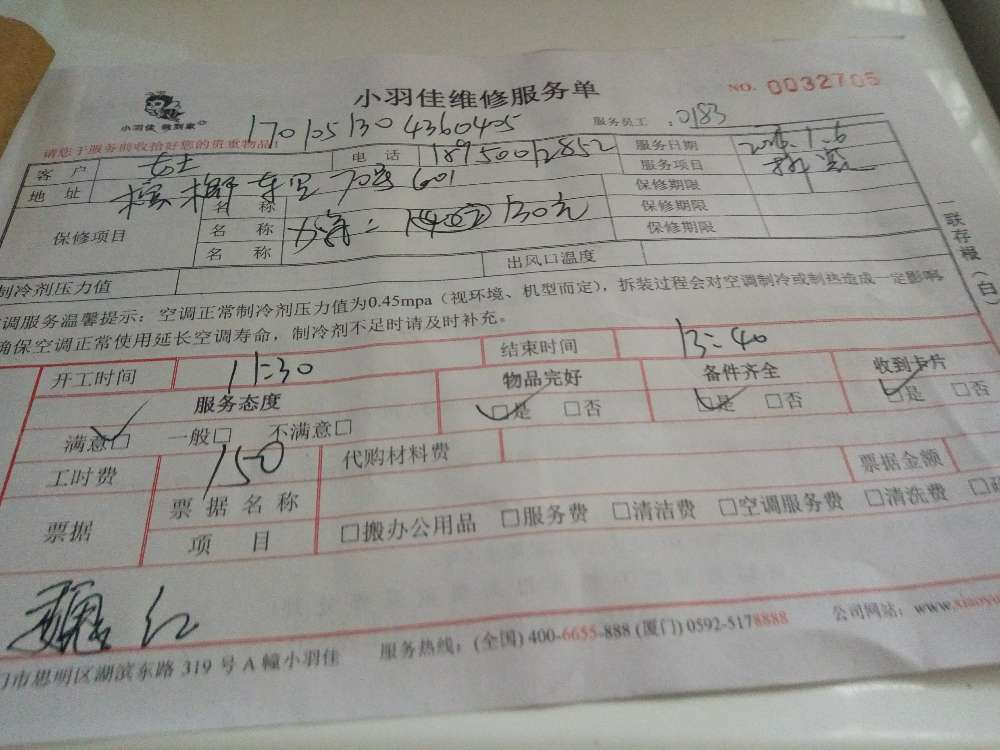 小羽佳维修服务单
NO. 0032705
小羽佳
1701051304360405
服务员工：0183
请您于服务前收拾好您的贵重物品！
客户 女士 电话 18950012852 服务日期
地址 70号 601 服务项目
保修项目 名称 保修期限
名称 130元 保修期限
名称 保修期限
制冷剂压力值 出风口温度
调服务温馨提示：空调正常制冷剂压力值为0.45mpa（视环境、机型而定），拆装过程会对空调制冷或制热造成一定影响
确保空调正常使用延长空调寿命，制冷剂不足时请及时补充。
一联存根（白）
开工时间 11:30 结束时间 13:40
服务态度 物品完好 备件齐全 收到卡片
满意□ 一般□ 不满意□ □是 □否 □是 □否 □是 □否
工时费 150 代购材料费 票据金额
票据 票据名称
项目 □搬办公用品 □服务费 □清洁费 □空调服务费 □清洗费
红
门市思明区湖滨东路 319 号 A 幢小羽佳 服务热线：(全国) 400-6655-888 (厦门) 0592-5178888 公司网站：www.xiaoy